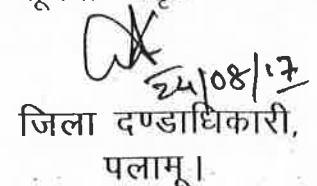 24/08/17
जिला दण्डाधिकारी,
पलामू।